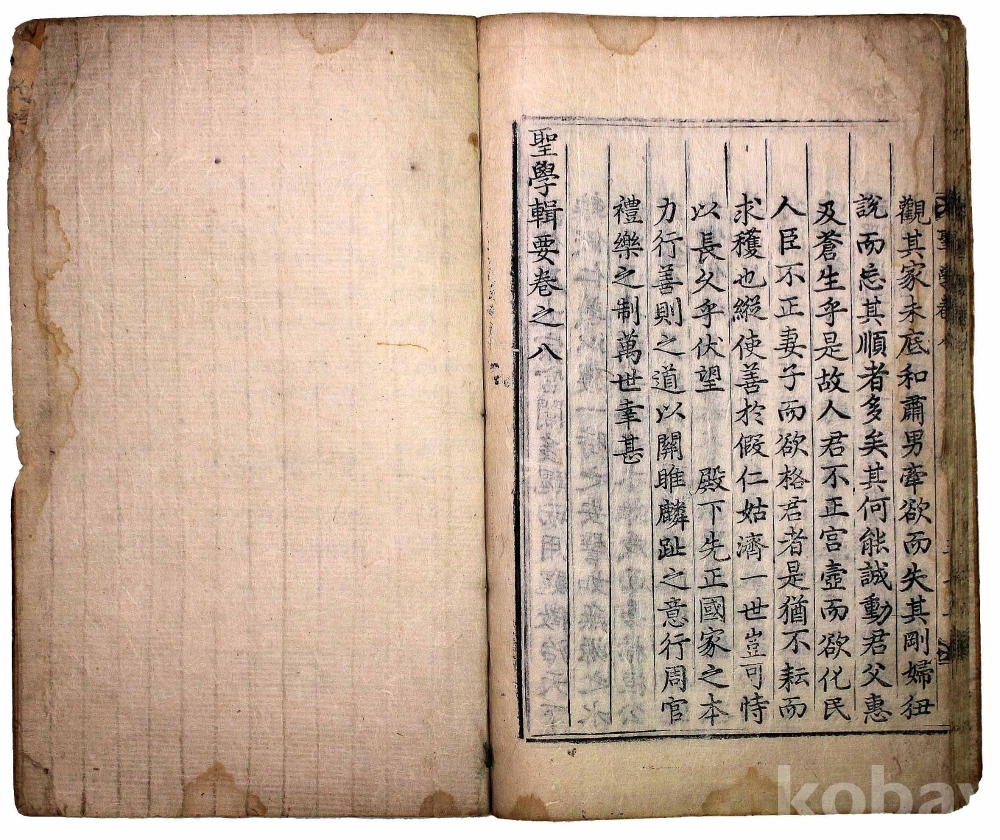 觀其家未底和肅男牽欲而失其剛婦狃
說而忘其順者多矣其何能誠動君父惠
及蒼生乎是故人君不正宮壼而欲化民
人臣不正妻子而欲格君者是猶不耘而
求穫也縱使善於假仁姑濟一世豈可恃
以長久乎伏望 殿下先正國家之本
力行善則之道以關雎麟趾之意行周官
禮樂之制萬世幸甚
聖學輯要卷之八
kobay